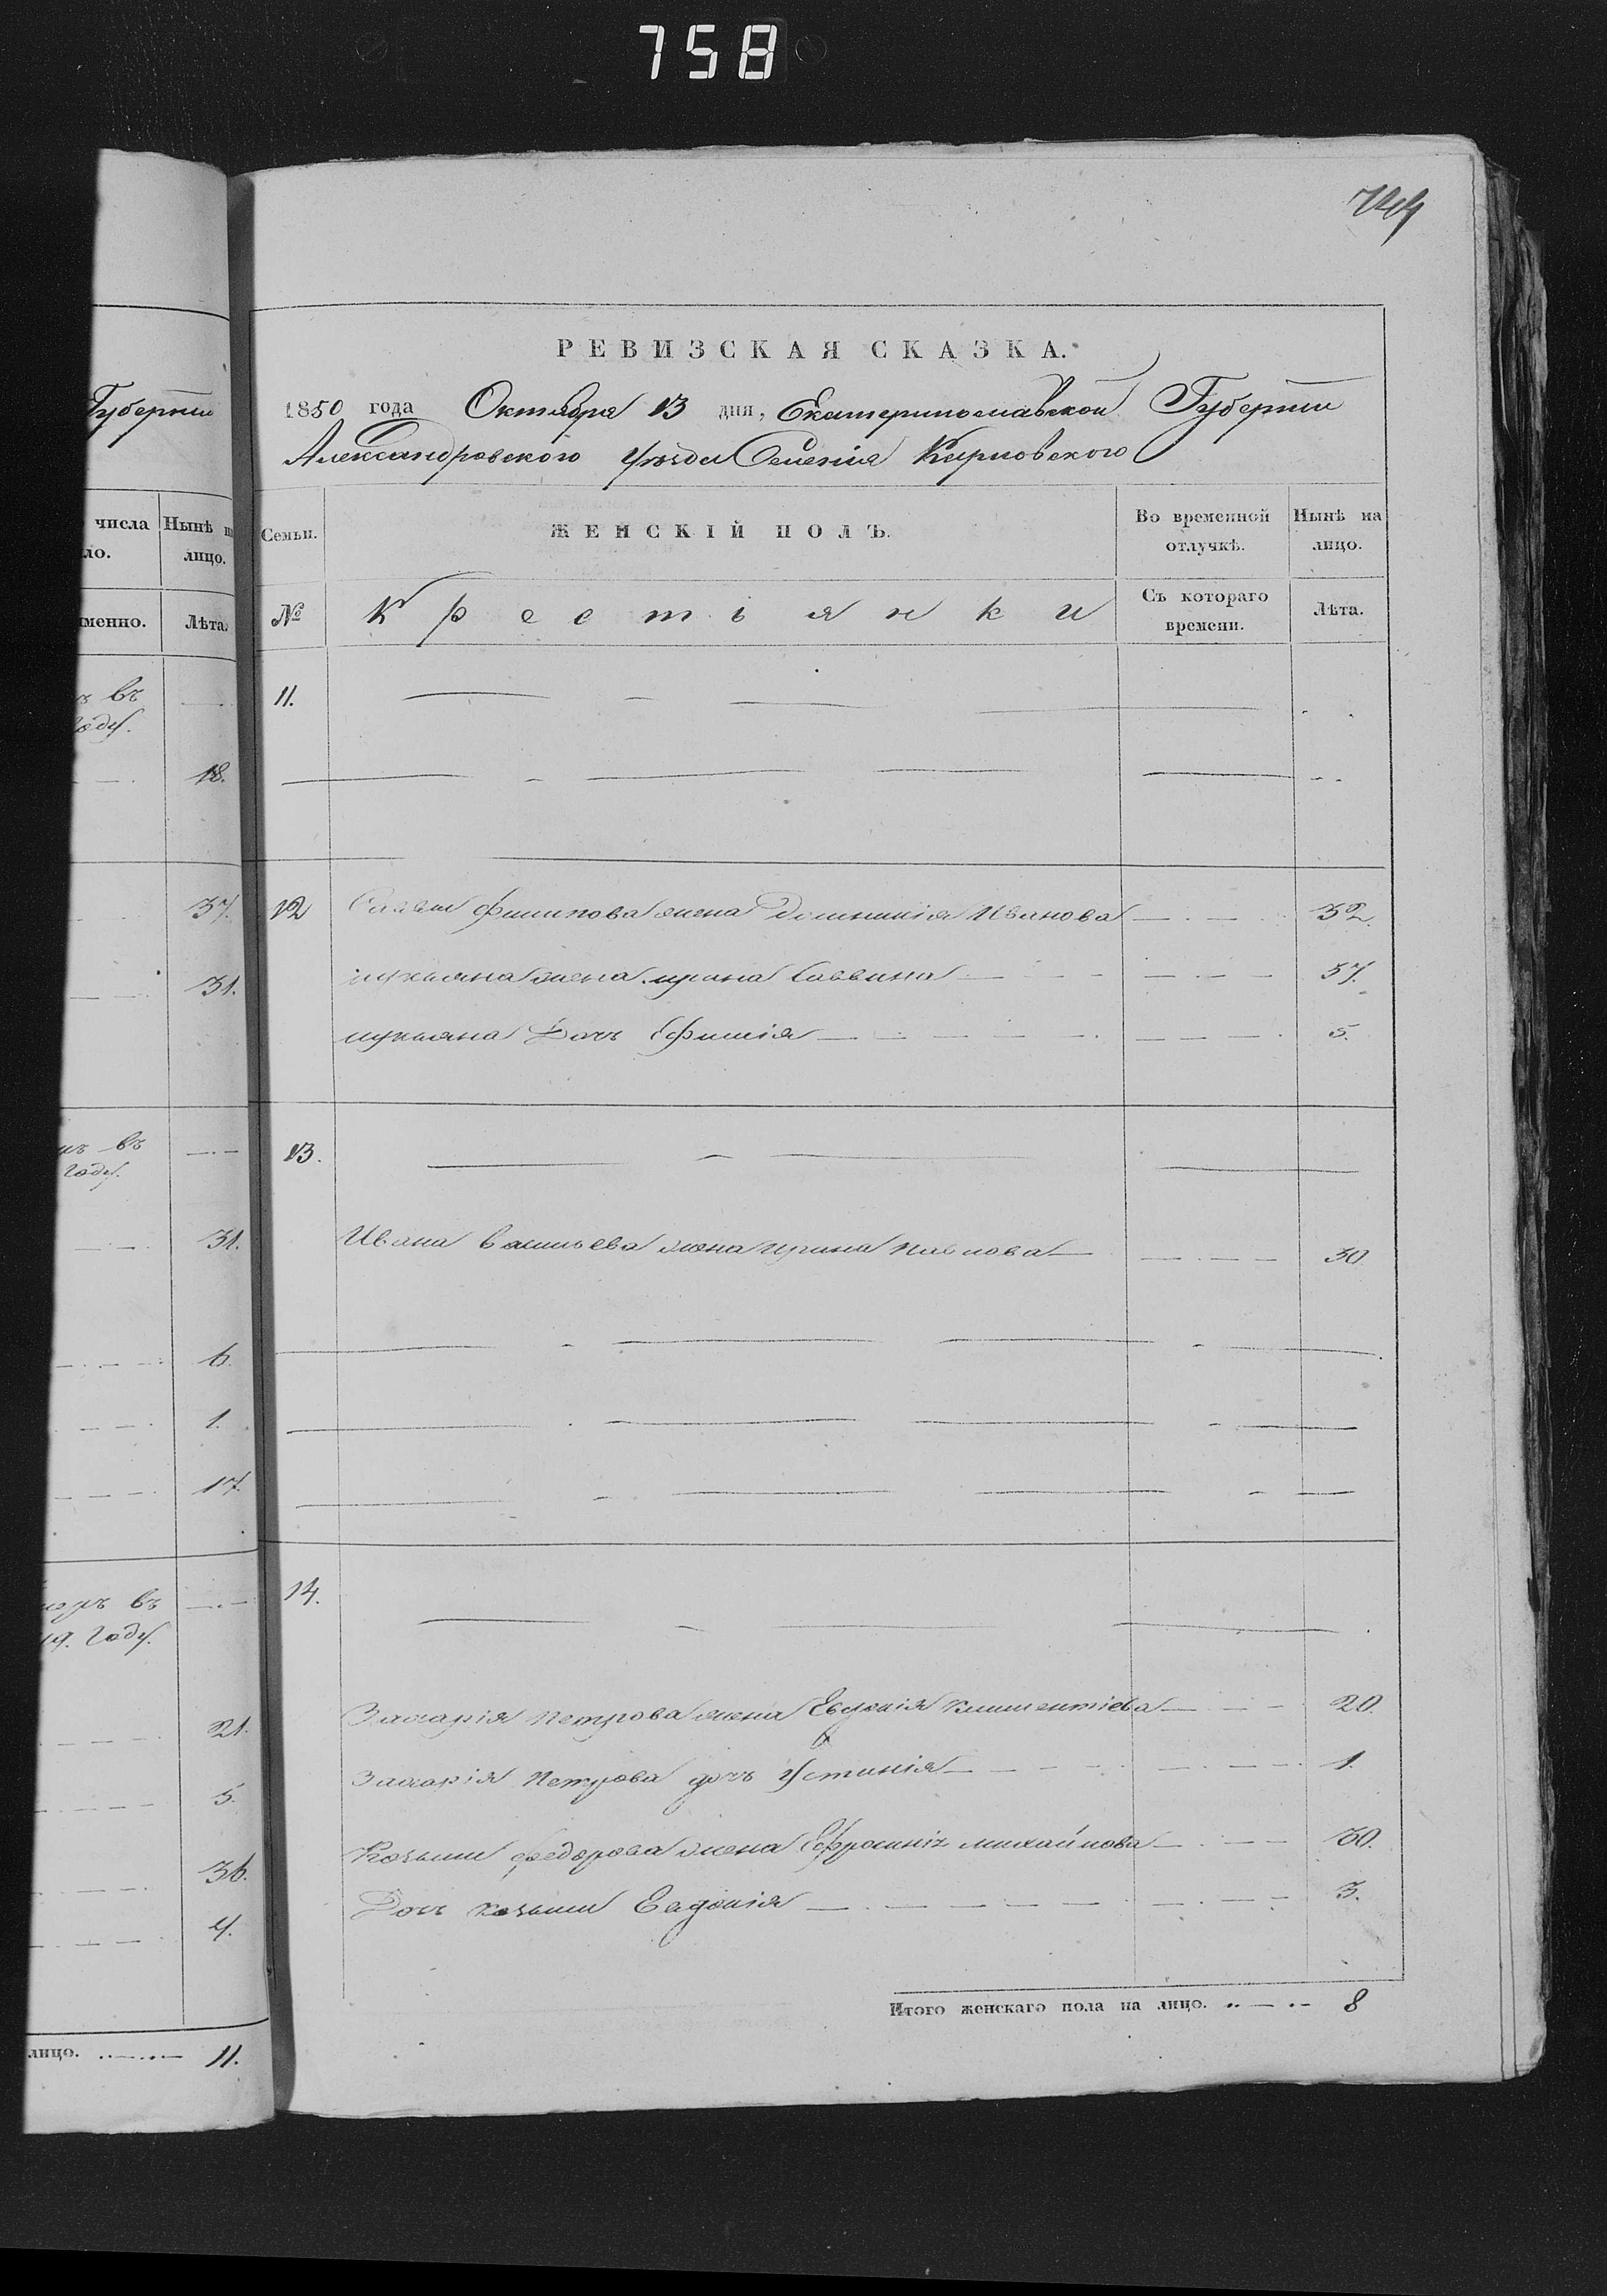 758
744
РЕВИЗСКАЯ СКАЗКА.
1850 года Октября 13 дня, Екатеринославской Губернии
Александровского уѣзда Селенія Карповского
Семьи. ЖЕНСКІЙ ПОЛЪ. Во временной отлучкѣ. Нынѣ на лицо.
№ Крестіянки Съ котораго времени. Лѣта.
11.
12 Саввы Филипова жена Домникія Иванова 32.
лукьяна жена ирина Саввина 37.
лукьяна Дочь Ефимія 5.
13.
Ивана васильева жена ирина павлова 30
14.
Захарія петрова жена Евдокія климентіева 20.
Захарія петрова дочь Устинія 1.
Козьмы федорова жена Ефросинія михайлова 30.
Дочь козьмы Евдокія 3.
Итого женскаго пола на лицо. 8
Губернии
числа Нынѣ
ло. лицо.
менно. Лѣта.
въ
году.
18.
37.
31.
въ
году.
31.
6.
1.
17.
въ
году.
21.
5.
36.
4.
лицо. 11.